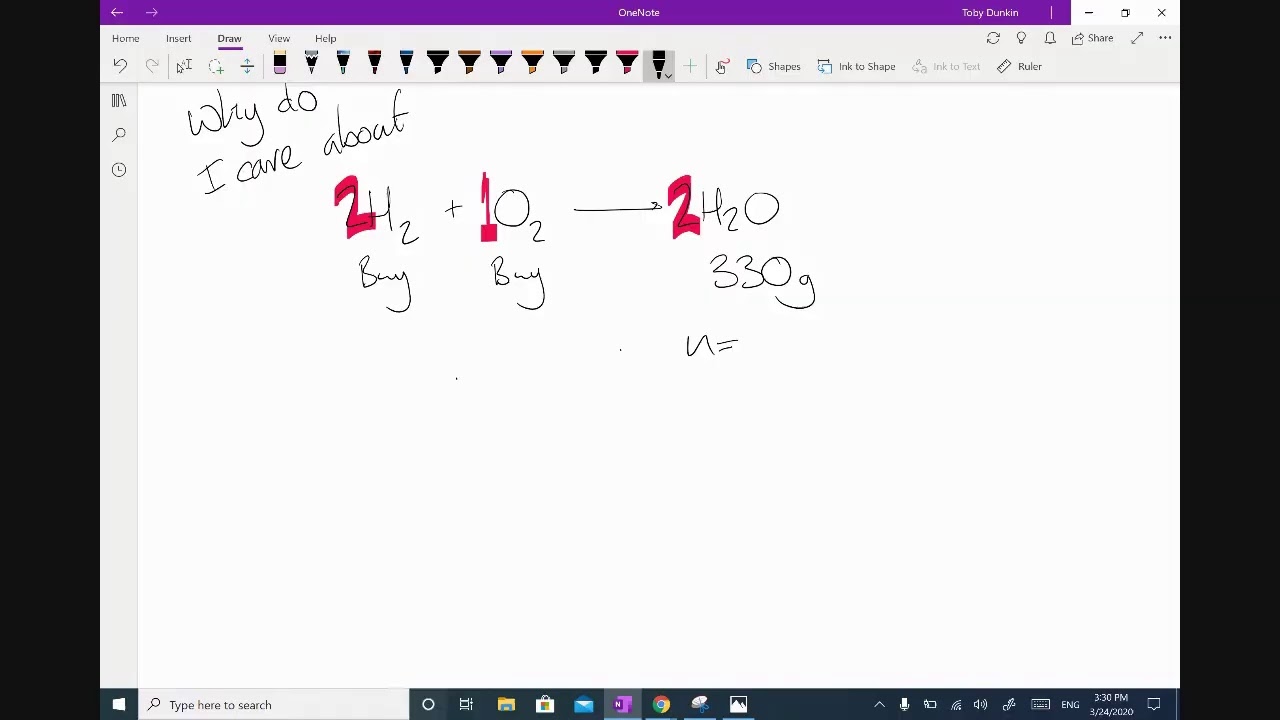 OneNote
Toby Dunkin
Home Insert Draw View Help
Share
Shapes Ink to Shape Ink to Text Ruler
Why do
I care about
2H2 + 1O2 → 2H2O
Buy Buy 330g
n=
Type here to search
ENG
3:30 PM
3/24/2020